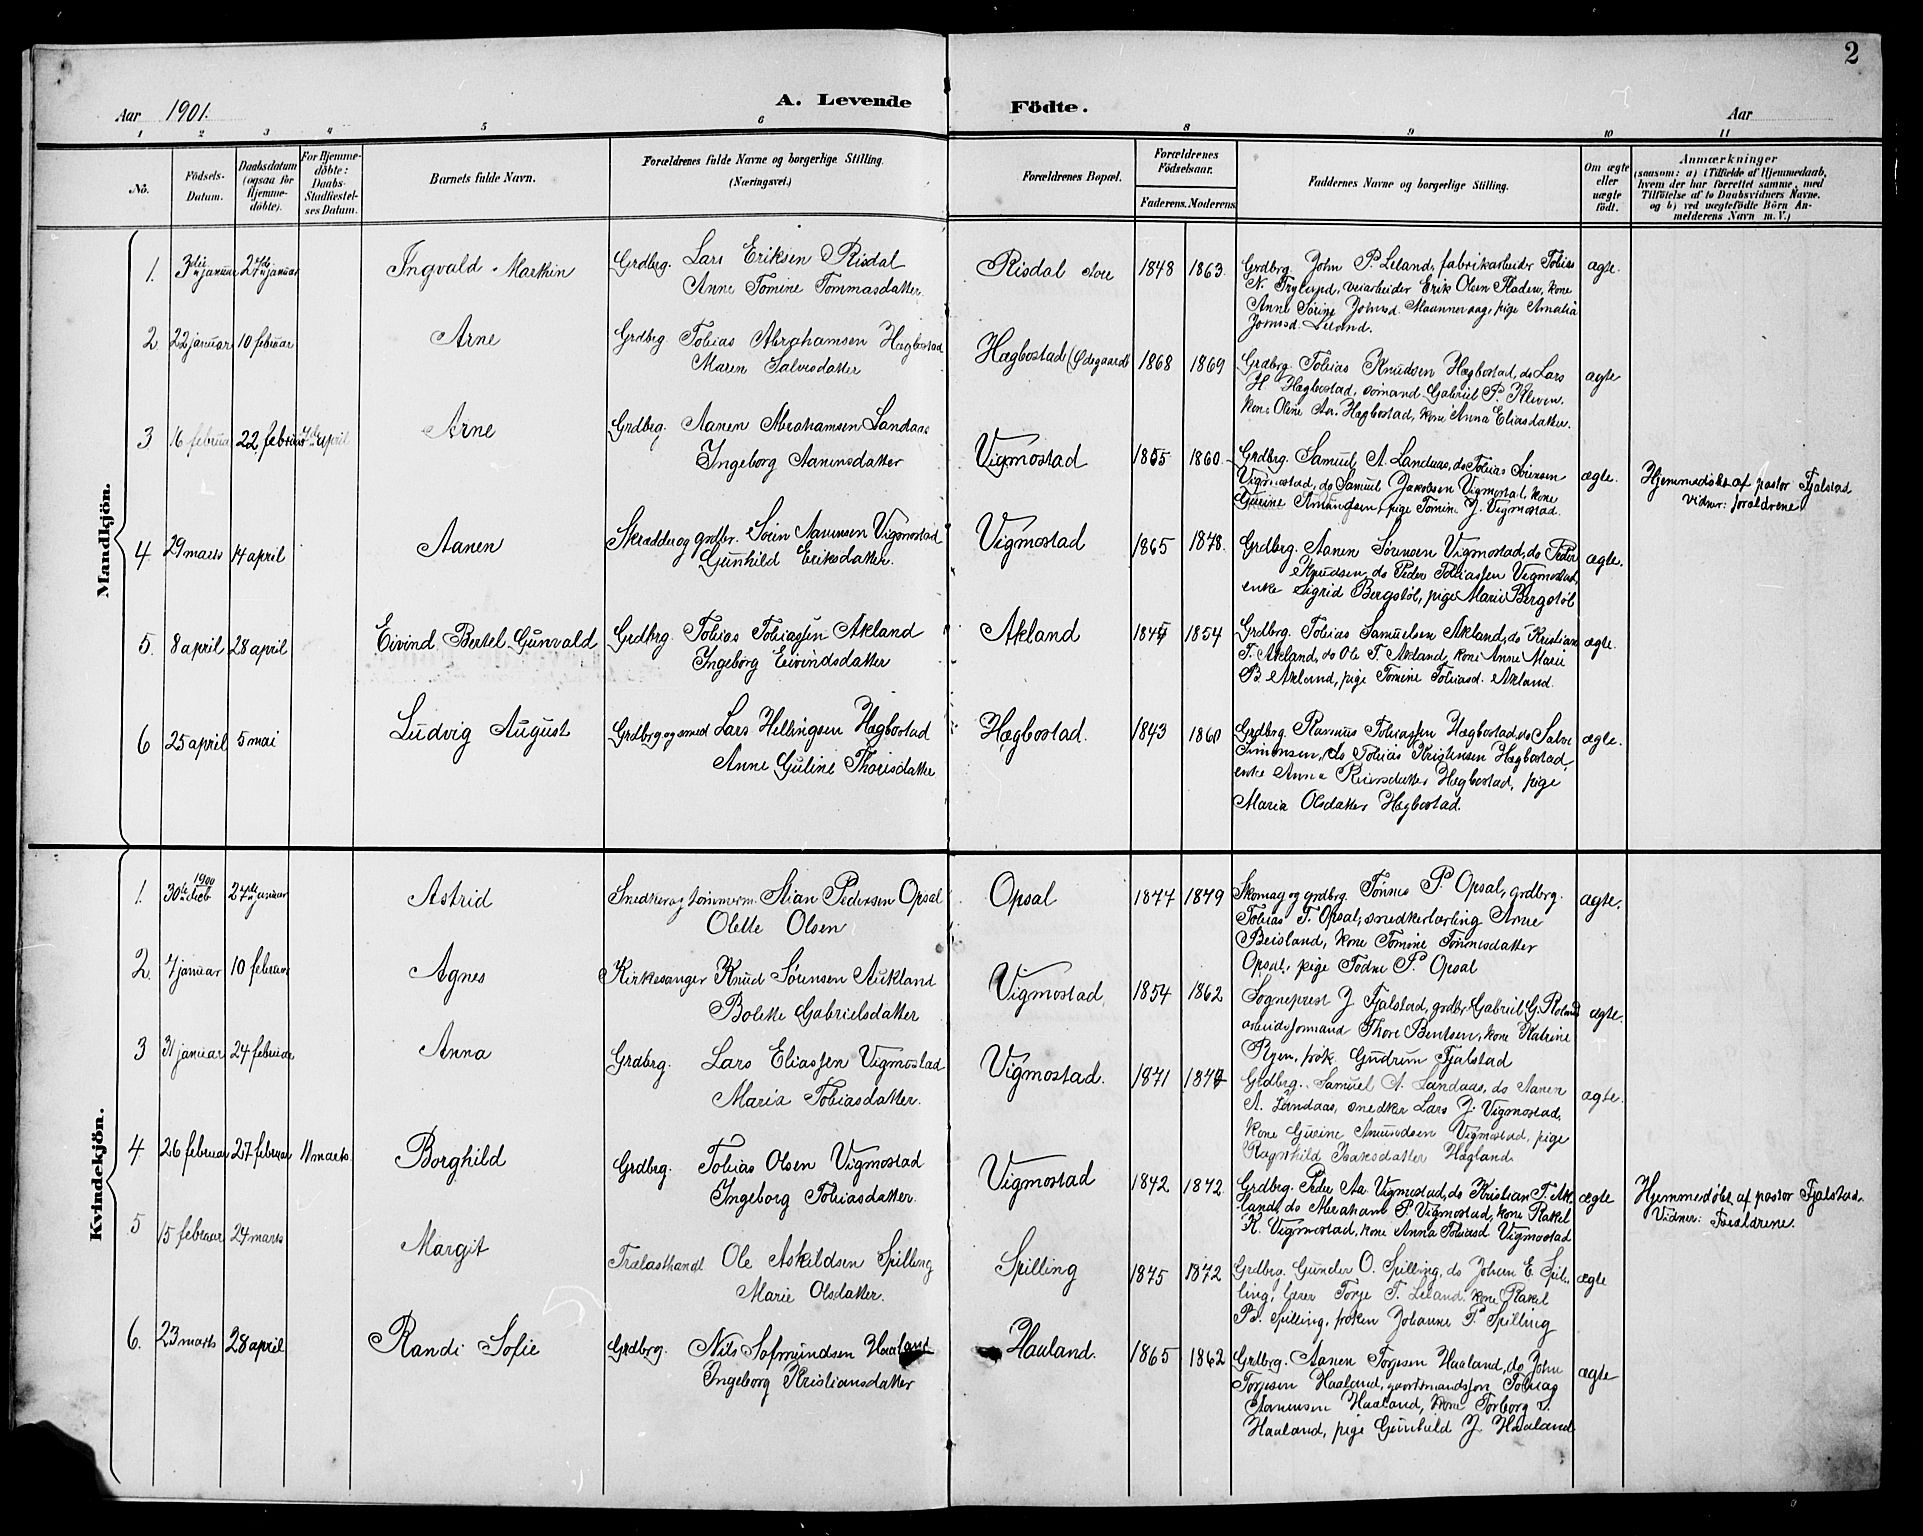 2
Aar 1901.
A. Levende Födte.
Aar
1 2 3 4 5 6 8 9 10 11
No.
Födsels-Datum.
Daabsdatum (ogsaa for Hjemme-döbte).
For Hjemme-döbte: Daabs-Stadfæstel-ses Datum.
Barnets fulde Navn.
Forældrenes fulde Navne og borgerlige Stilling. (Næringsvei.)
Forældrenes Bopæl.
Forældrenes Födselsaar.
Faderens. Moderens.
Faddernes Navne og borgerlige Stilling.
Om ægte eller uægte födt.
Anmærkninger
(saasom: a) i Tilfælde af Hjemmedaab, hvem der har forrettet samme, med Tilföielse af to Daabsvidners Navne. og b) ved uægtefödte Börn An-melderens Navn m. V.)
Mandkjön.
1. 3die januar 27de januar Ingvald Marthin Grdbrg. Lars Eriksen Risdal
Anne Tomine Tommasdatter.
Risdal store 1848 1863. Grdbrg. John P. Leland, fabrikarbeider Tobias
N. Trylund, veiarbeider Erik Olsen Fladen, kone
Anne Sørine Johnsd. Maannevaag, pige Amalia
Jonsd. Leland.
ægte.
2 22 januar 10 februar Arne Grdbrg Tobias Abrahamsen Hægbostad
Maren Salvesdatter
Hægbostad (Ødegaard) 1868 1869 Grdbrg. Tobias Knudsen Hægbostad, do Lars
H. Hægbostad, sømand Gabriel P. Kleven,
kone Oline Aa. Hægbostad, kone Anna Eliasdatter.
ægte
3 16 februar 22 februar 14de april Arne Grdbrg. Aanen Abrahamsen Landaas
Ingeborg Aanensdatter
Vigmostad 1855 1860 Grdbrg. Samuel A. Landaas, do Tobias Sørensen
Vigmostad, do Samuel Jakobsen Vigmostad, kone
Gurine Amundsen, pige Tomine J. Vigmostad.
ægte.
Hjemmedøbt af pastor Fjalstad
vidner: forældrene
4. 29 marts 14 april Aanen Skrædder og grdbr. Sørin Aanensen Vigmostad
Gunhild Eriksdatter.
Vigmostad 1865 1878. Grdbrg. Aanen Sørensen Vigmostad, do Peder
Knudsen, do Peder Tobiassen Vigmostad,
enke Sigrid Bergstøl, pige Marie Bergstøl
ægte.
5. 8 april 28 april Eivind Bertel Gunvald Grdbrg. Tobias Tobiassen Akland
Ingeborg Eivindsdatter
Akland 1845 1854 Grdbrg. Tobias Samuelsen Akland, do Kristian
T. Akland, do Ole T. Akland, kone Anne Marie
B Akland, pige Tomine Tobiasd. Akland.
ægte.
6 25 april 5 mai Ludvig August Grdbrg og smed Lars Hellingsen Hægbostad
Anne Guline Thorisdatter
Hægbostad. 1843 1860 Grdbrg. Rasmus Tobiassen Hægbostad, do Salve
Simonsen, do Tobias Kristensen Hægbostad,
enke Anna Reiersdatter Hægbostad, pige
Maria Olsdatter Hægbostad.
ægte.
Kvindekjön.
1. 30te decb 1900 27de januar Astrid Snedker og tømmerm. Stian Pedersen Opsal
Olette Olsen
Opsal 1877 1879 Skomag og grdbrg. Tønnes P. Opsal, grdbrg.
Tobias T. Opsal, snedkerlærling Arne
Beisland, kone Tomine Tønnesdatter
Opsal, pige Todne P. Opsal
ægte.
2. 7 januar 10 februar Agnes Kirkesanger Knud Sørensen Aukland
Bolette Gabrielsdatter
Vigmostad, 1854 1862 Sogneprest J. Fjalstad, grdbr. Gabriel G. Roland
arbeidsformand Thore Bentsen, kone Katrine
Ryen, frøk. Gudrun Fjalstad
ægte.
3 31 januar 24 februar Anna Grdbrg. Lars Eliassen Vigmostad
Maria Tobiasdatter.
Vigmostad. 1871 1870 Grdbrg. Samuel A. Landaas, do Aanen
A. Landaas, snedker Lars J. Vigmostad,
kone Gurine Amundsen Vigmostad, pige
Ragnhild Isaksdatter Hægland.
ægte.
4 26 februar 27 februar 11 marts Borghild Grdbrg. Tobias Olsen Vigmostad
Ingeborg Tobiasdatter.
Vigmostad 1842 1872 Grdbrg. Peder Aa. Vigmostad, do Kristian T. Ak-
land, do Abraham P. Vigmostad, kone Rakel
K. Vigmostad, kone Anna Tobiasd Vigmostad
ægte
Hjemmedøbt af pastor Fjalstad.
Vidner: Forældrene.
5 15 februar 24 marts Margit Trælasthandl Ole Askildsen Spilling
Marie Olsdatter.
Spilling 1875 1872 Grdbrg. Gunder O. Spilling, do Johan E. Spil-
ling, lærer Torje T. Leland, kone Rakel
B. Spilling, frøken Johanne P. Spilling
ægte
6. 23 marts 28 april Randi Sofie Grdbrg. Nils Sofmundsen Haaland
Ingeborg Kristiansdatter
Haaland. 1865 1862 Grdbrg. Aanen Torjesen Haaland, do John
Torjesen Haaland, gaardmandssøn Tobias
Aanensen Haaland, kone Torborg
Haaland, pige Gunhild J. Haaland
ægte